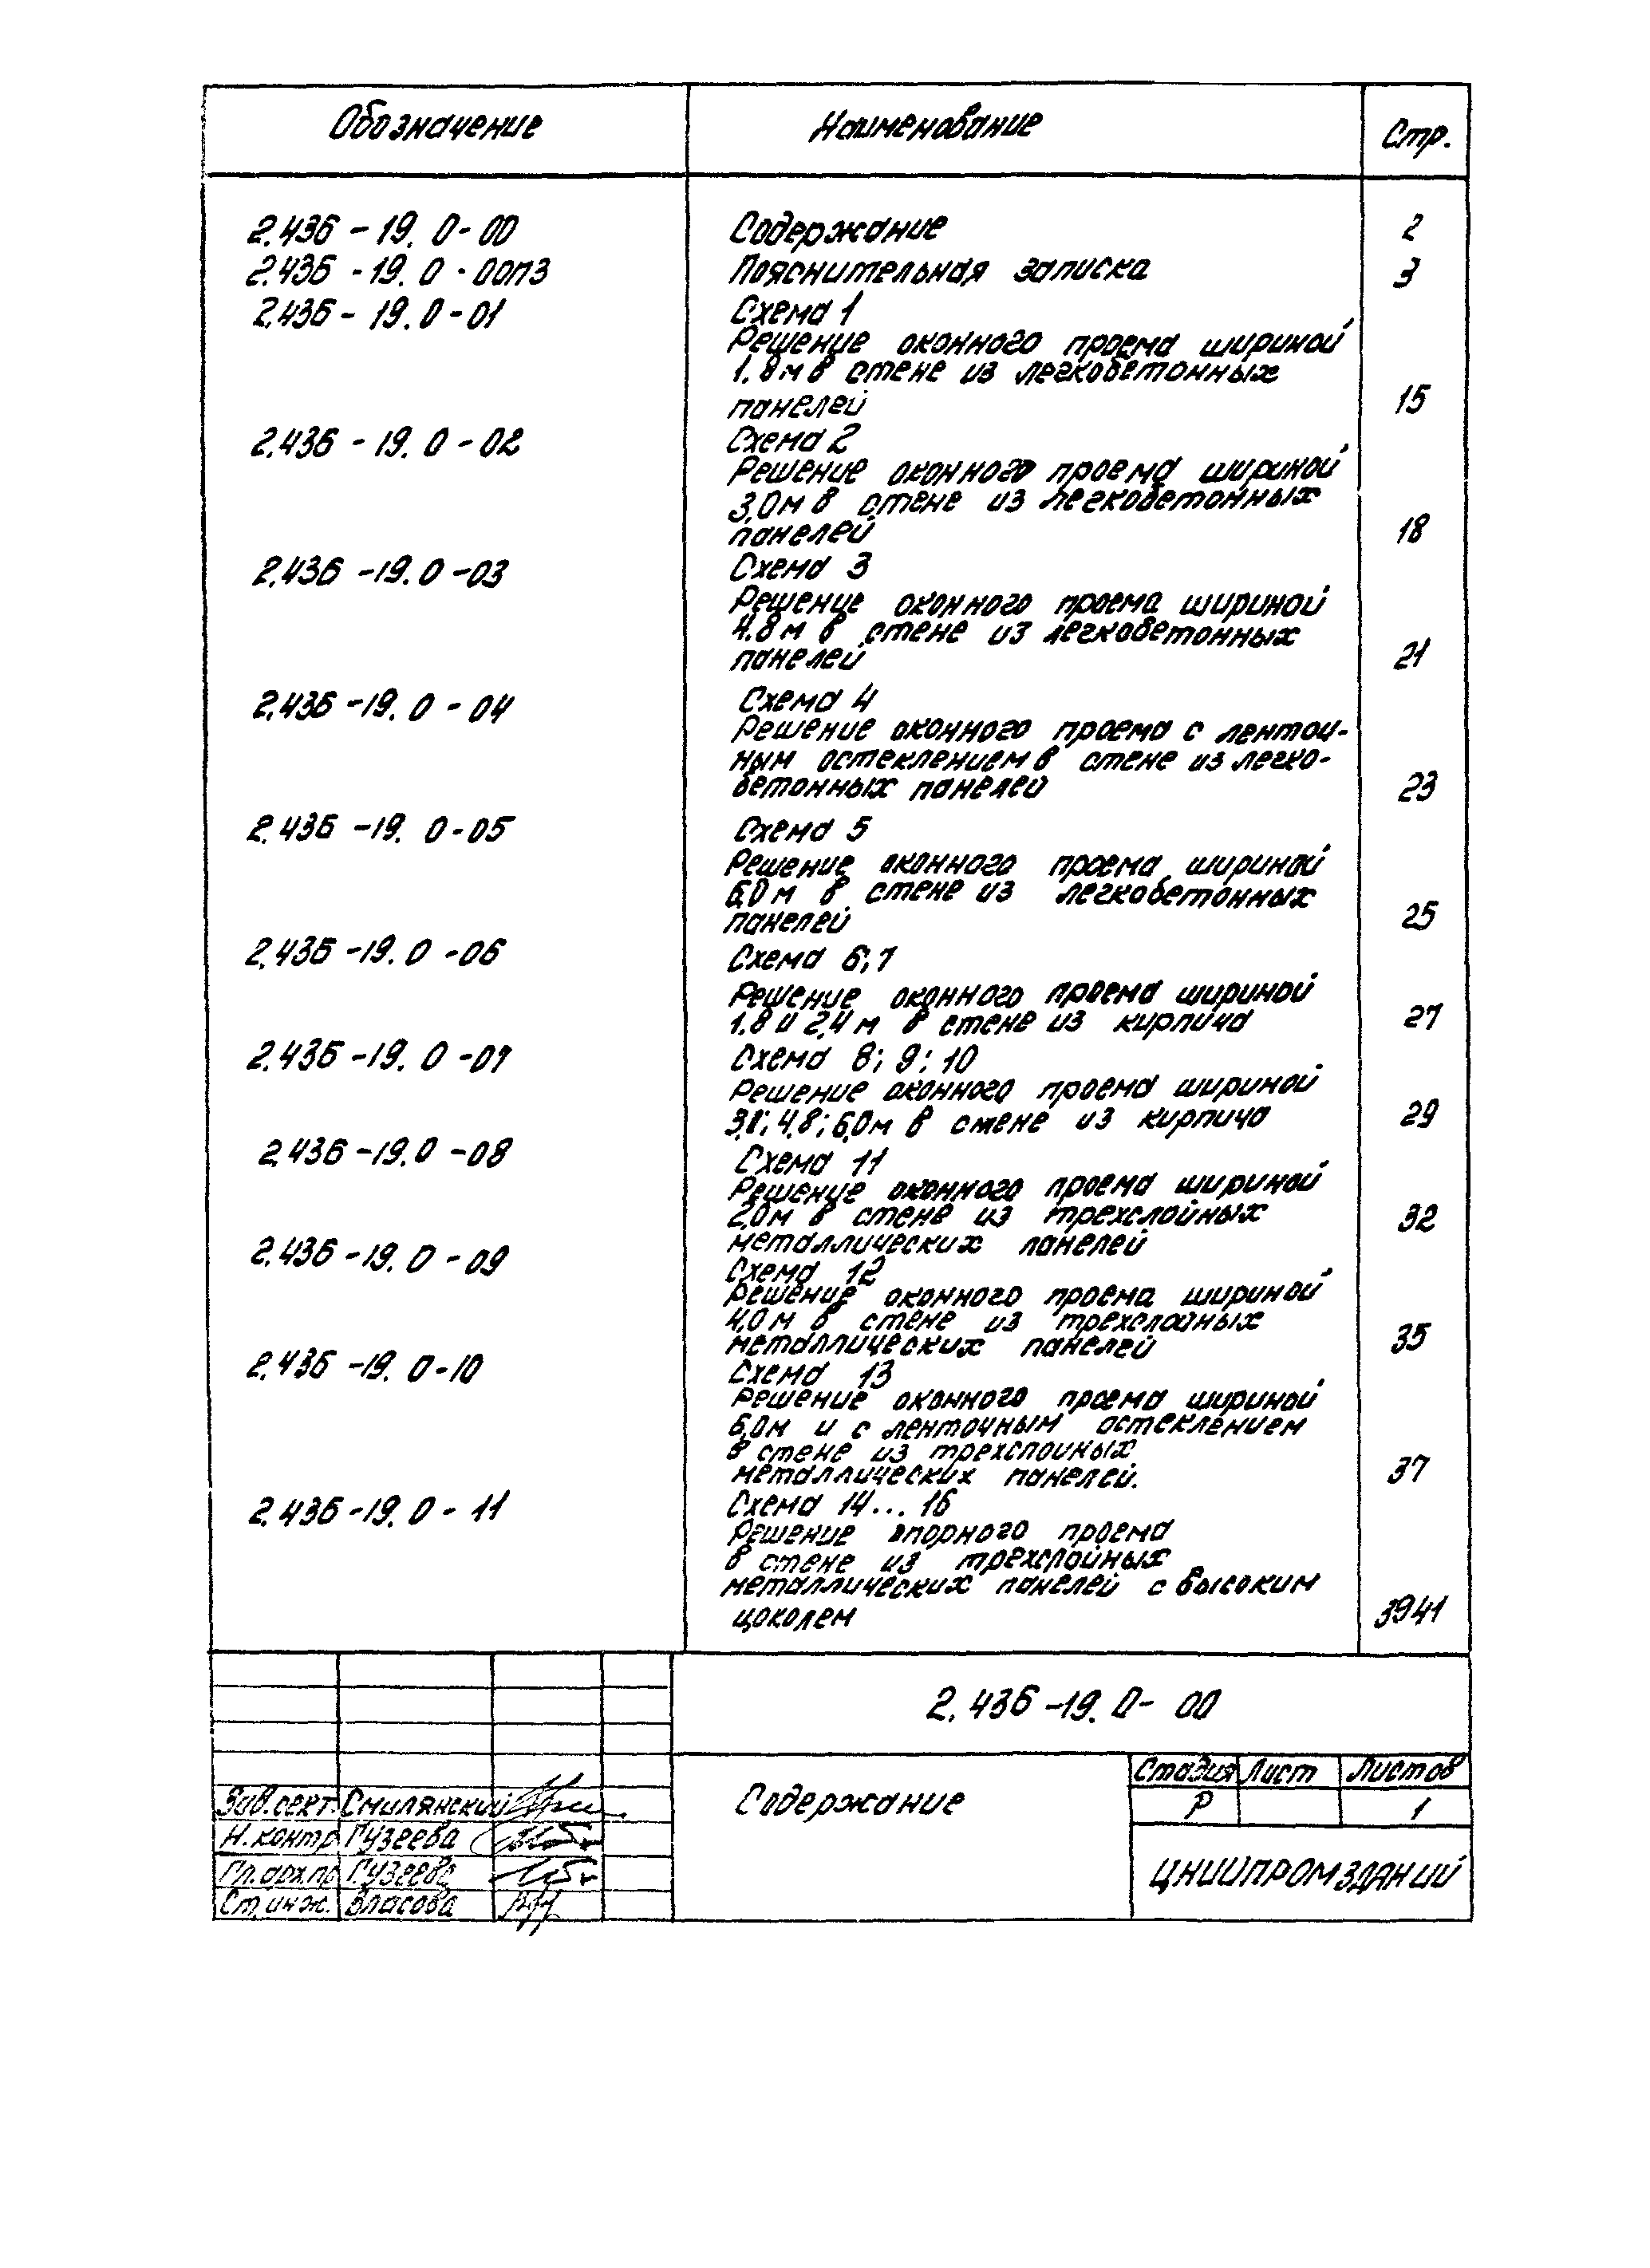 Обозначение Наименование Стр.
2.436-19.0-00 Содержание 2
2.436-19.0-00ПЗ Пояснительная записка 3
2.436-19.0-01 Схема 1
Решение оконного проема шириной
1.8м в стене из легкобетонных
панелей 15
2.436-19.0-02 Схема 2
Решение оконного проема шириной
3,0м в стене из легкобетонных
панелей 18
2.436-19.0-03 Схема 3
Решение оконного проема шириной
4.8м в стене из легкобетонных
панелей 21
2.436-19.0-04 Схема 4
Решение оконного проема с ленточ-
ным остеклением в стене из легко-
бетонных панелей 23
2.436-19.0-05 Схема 5
Решение оконного проема шириной
6,0м в стене из легкобетонных
панелей 25
2.436-19.0-06 Схема 6;7
Решение оконного проема шириной
1.8 и 2,4м в стене из кирпича 27
2.436-19.0-07 Схема 8; 9; 10
Решение оконного проема шириной
4,8; 6,0м в стене из кирпича 29
2.436-19.0-08 Схема 11
Решение оконного проема шириной
2,0м в стене из трехслойных 32
металлических панелей
2.436-19.0-09 Схема 12
Решение оконного проема шириной
4,0м в стене из трехслойных
металлических панелей 35
2.436-19.0-10 Схема 13
Решение оконного проема шириной
6,0м и с ленточным остеклением
в стене из трехслойных
металлических панелей. 37
2.436-19.0-11 Схема 14...16
Решение проема
в стене из трехслойных
металлических панелей с высоким
цоколем 3941
2.436-19.0-00
Содержание
Стадия Лист Листов
Р 1
ЦНИИПРОМЗДАНИЙ
Зав.сект. Смилянский
Н.контр Гузеева
Гл.арх.пр Гузеева
Ст.инж. Власова